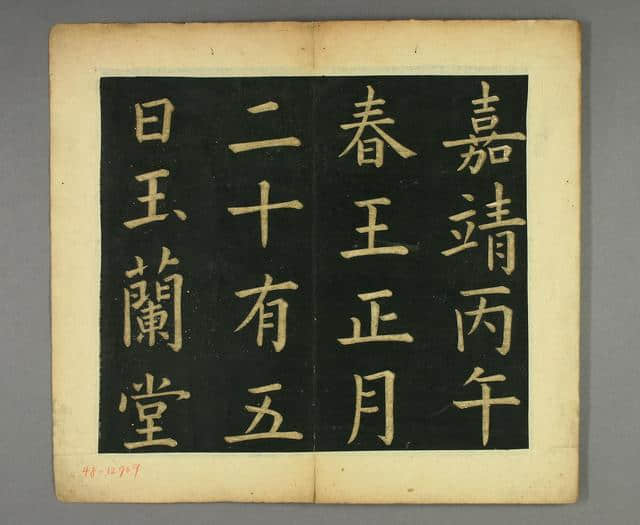 嘉靖丙午
春王正月
二十有五
日玉蘭堂
48-12969